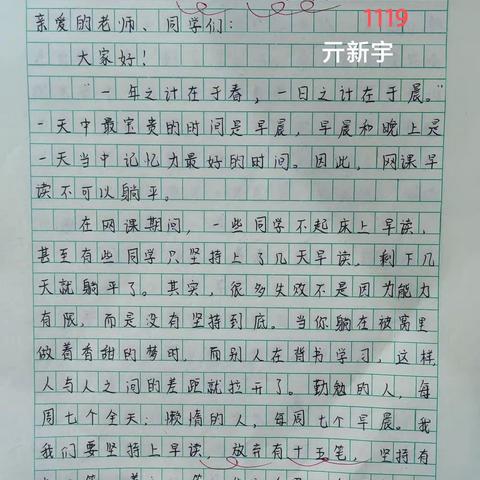 亲爱的老师、同学们：
1119
亓新宇
大家好！
"一年之计在于春，一日之计在于晨。"
一天中最宝贵的时间是早晨，早晨和晚上是
一天当中记忆力最好的时间。因此，网课早
读不可以躺平。
在网课期间，一些同学不起床上早读，
甚至有些同学只坚持上了几天早读，剩下几
天就躺平了。其实，很多失败不是因为能力
有限，而是没有坚持到底。当你躺在被窝里
做着香甜的梦时，而别人在背书学习，这样
人与人之间的差距就拉开了。勤勉的人，每
周七个全天；懒惰的人，每周七个早晨。我
我们要坚持上早读，放弃有十五笔，坚持有